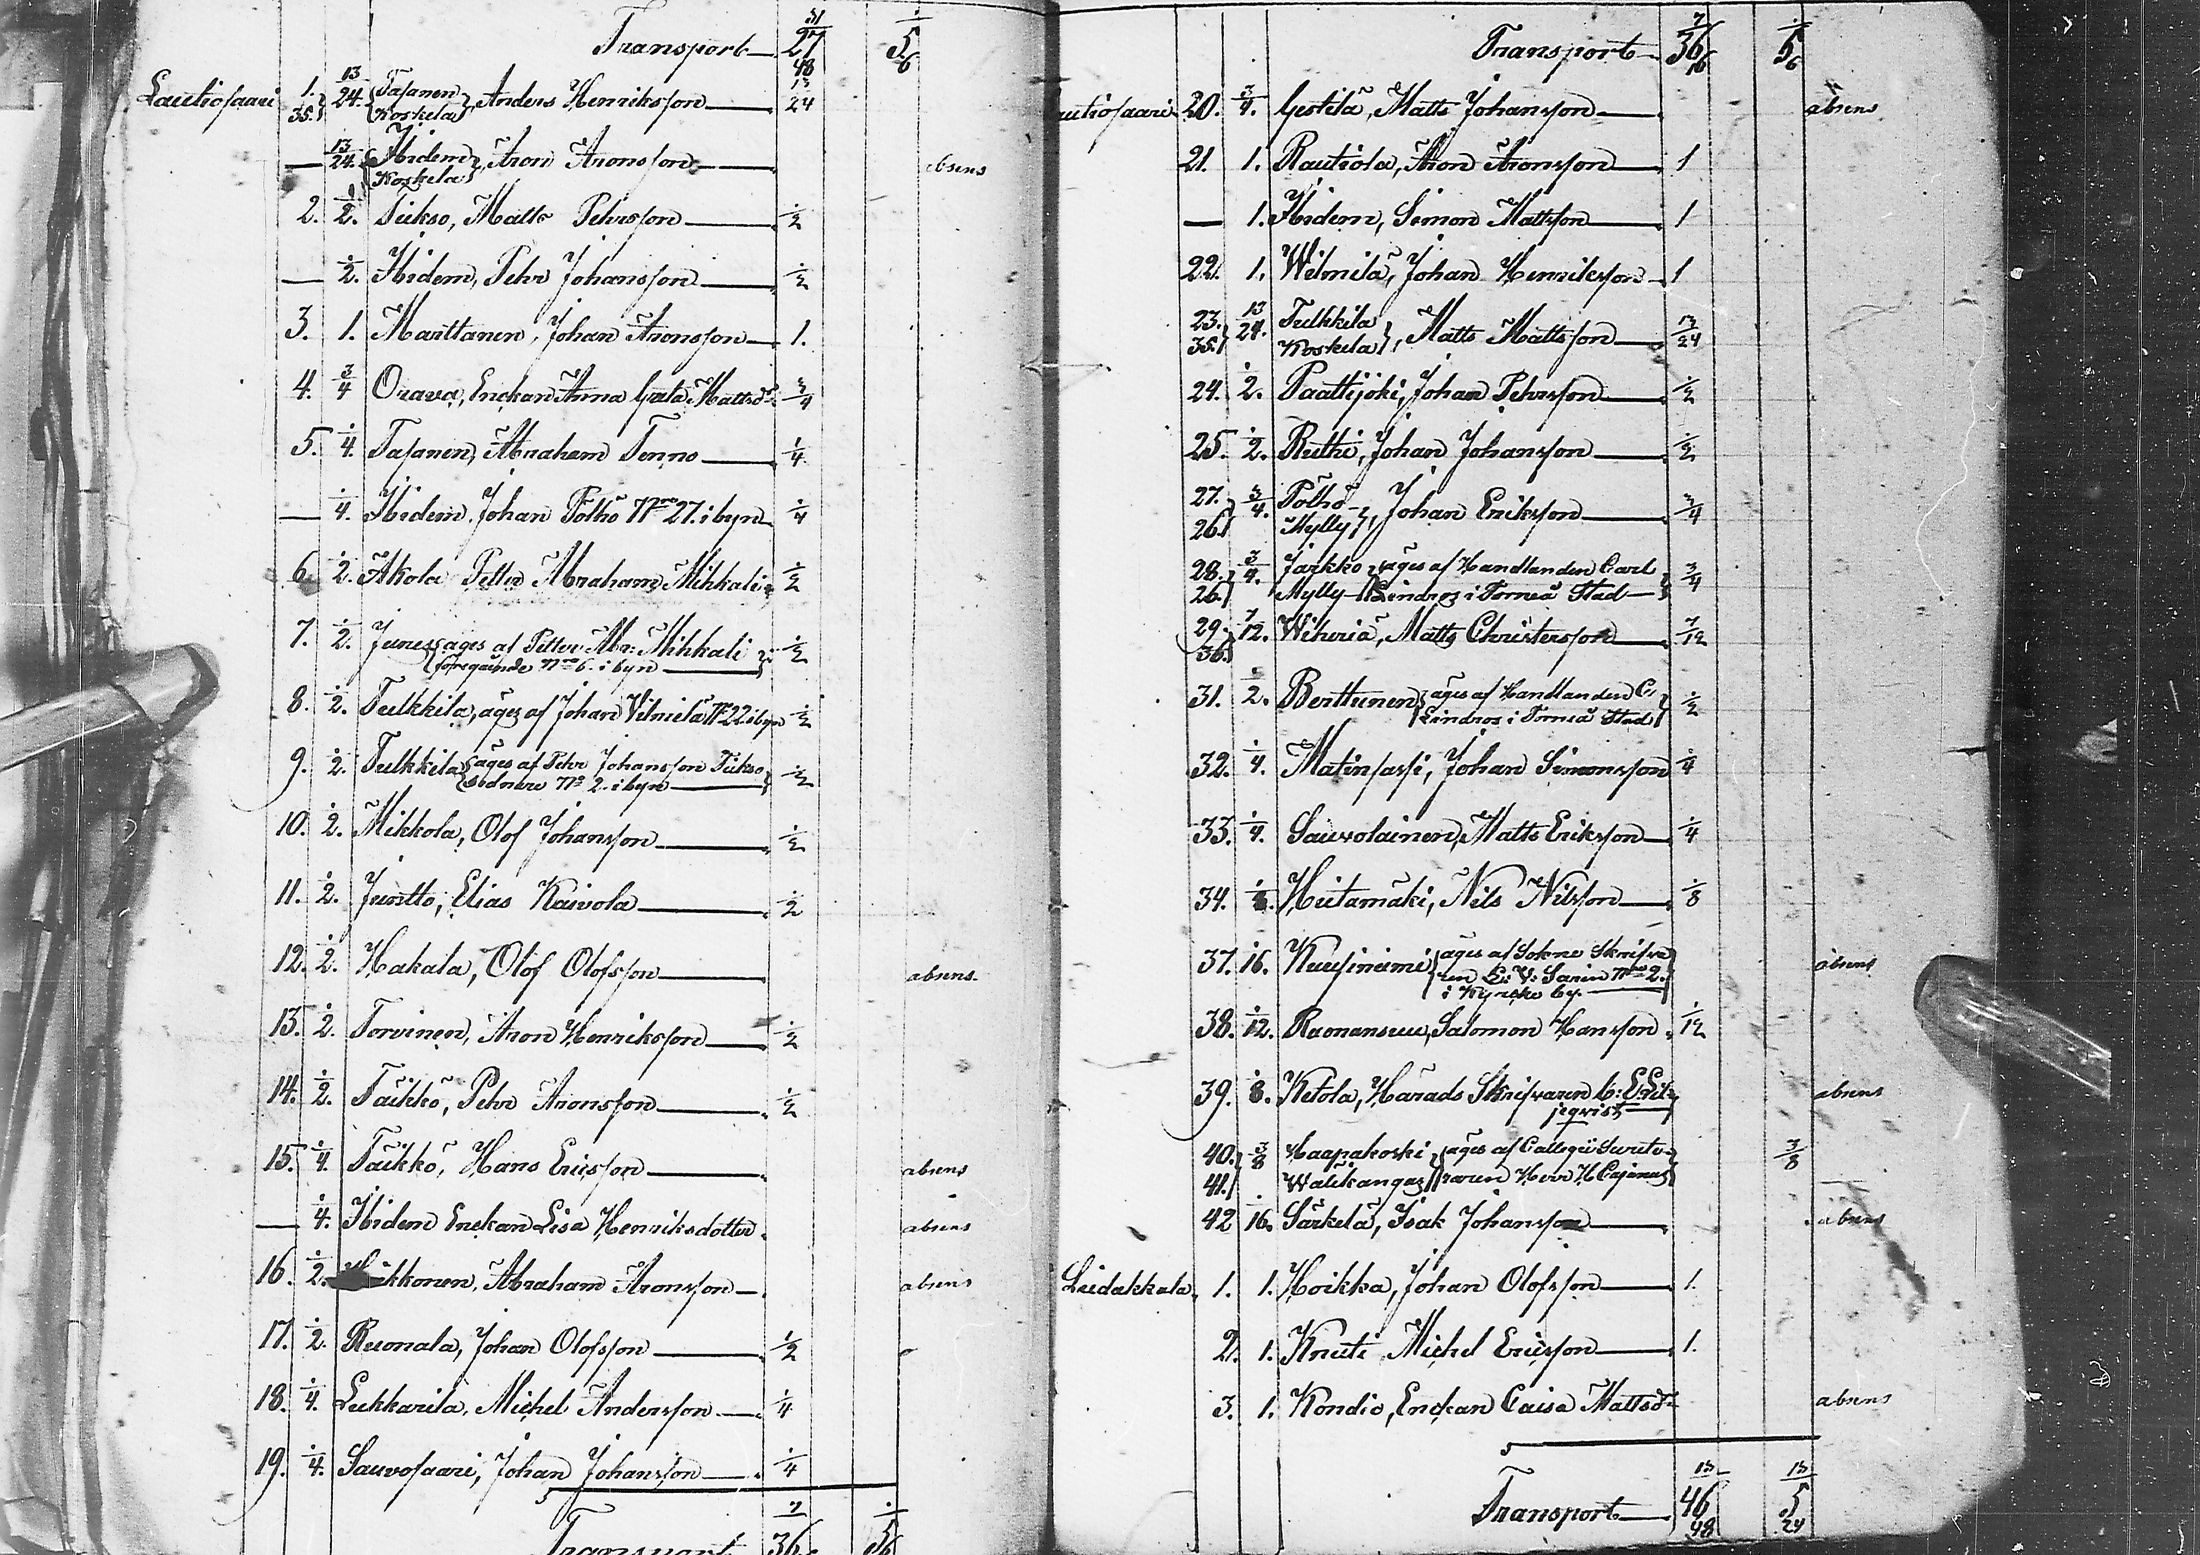 Transport 27 31/48 5 1/6
Lautiosaari 1. 35. 13/24. Tapanen Koskela, Anders Henriksson 13/24
— 13/24. Ibidem Koskela, Aron Aronsson absens
2. 1/2. Tiikso, Matts Pehrsson 1/2
— 1/2. Ibidem, Pehr Johansson 1/2
3. 1. Marttanen, Johan Aronsson 1.
4. 3/4 Orava, Enckan Anna Greta Mattsdr 3/4
5. 1/4. Tapanen, Abraham Tenno 1/4
— 1/4. Ibidem. Johan Pölhö No 27. i byn 1/4
6. 1/2. Akola Petter Abraham Mihkali 1/2
7. 1/2. Junes äges af Petter Abr: Mihkali 1/2
föregående No 6. i byn
8. 1/2. Tulkkila, äges af Johan Vilmilä No 22 i byn 1/2
9. 1/2. Tulkkila äges af Pehr Johansson Tiikso 1/2
sednare No 2. i byn
10. 1/2. Mikkola, Olof Johansson 1/2
11. 1/2. Juntto, Elias Kaivola 1/2
12. 1/2. Hakala, Olof Olofsson absens.
13. 1/2. Torvinen, Aron Henriksson 1/2
14. 1/2. Täikkö, Pehr Aronsson 1/2
15. 1/4. Täikkö, Hans Ericsson absens
— 1/4. Ibidem Enckan Lisa Henriksdotter absens
16. 1/2. Abraham Aronsson absens
17. 1/2. Ruonala, Johan Olofsson 1/2
18. 1/4. Lukkarila, Michel Andersson 1/4
19. 1/4. Sauvosaari, Johan Johansson 1/4
Transport 36 5
Transport 36 7/16 5 1/6
autiosaari 20. 3/4. Gestilä, Matts Johansson absens
21. 1. Rautiola, Aron Aronsson 1
— 1. Ibidem, Simon Mattsson 1
22. 1. Wilmilä, Johan Henriksson 1
23. 35. 13/24. Tulkkila Koskela, Matts Mattsson 13/24
24. 1/2. Paattijoki, Johan Pehrsson 1/2
25. 1/2. Ruthi, Johan Johansson 1/2
27. 26. 3/4. Pölhö Mylly, Johan Eriksson 3/4
28. 3/4. Jarkko äges af Handlanden Carl 3/4
26. Mylly Lindros i Torneå Stad
29. 36. 7/12. Wiheriä, Matts Christersson 7/12
31. 1/2. Berttunen äges af Handlanden C: 1/2
Lindros i Torneå Stad
32. 1/4. Matinlassi, Johan Simonsson 1/4
33. 1/4. Sauvolainen, Matts Eriksson 1/4
34. 1/8. Hiitamäki, Nils Nilsson 1/8
37. 1/16. Kuusiniemi äges af Sokne Skrifva absens
ren No 2.
i Kyrcko by.
38. 1/12. Raonansuu, Salomon Hansson 1/12
39. 1/8. Ketola, Härads Skrifvaren C: E Lil absens
jeqvist
40. 3/8 Haapakoski äges af Collegii 3/8
41. Walikangas raren Herr H Cajanus
42 1/16. Särkelä, Isak Johansson absens
Liedakkala 1. 1. Hoikka, Johan Olofsson 1.
2. 1. Knuti Michel Ericsson 1.
3. 1. Kondio, Enckan Caisa Mattsdr absens
Transport 46 13/48 5 13/24